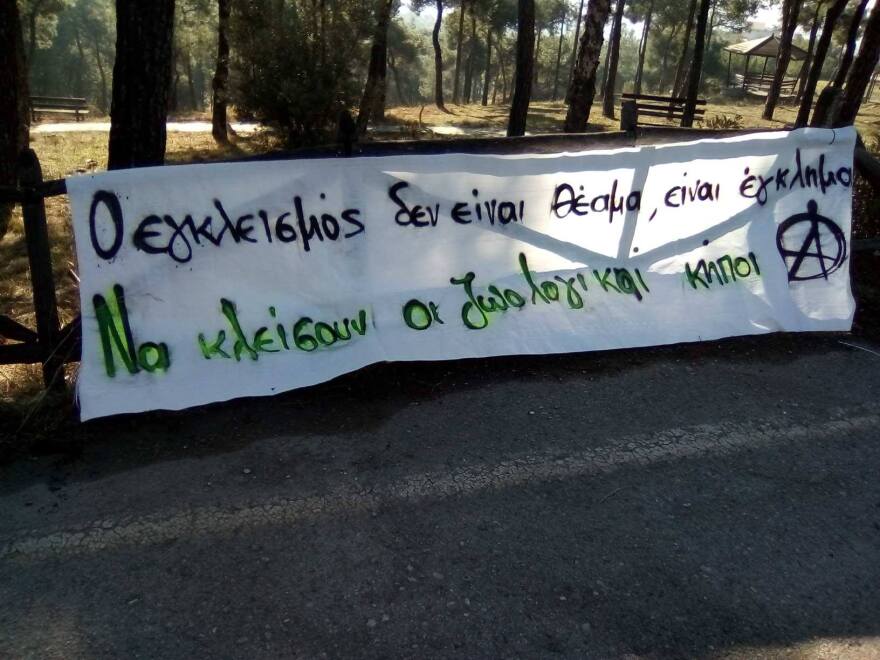 Ο εγκλεισμός δεν είναι θέαμα, είναι έγκλημα
Να κλείσουν οι ζωολογικοί κήποι